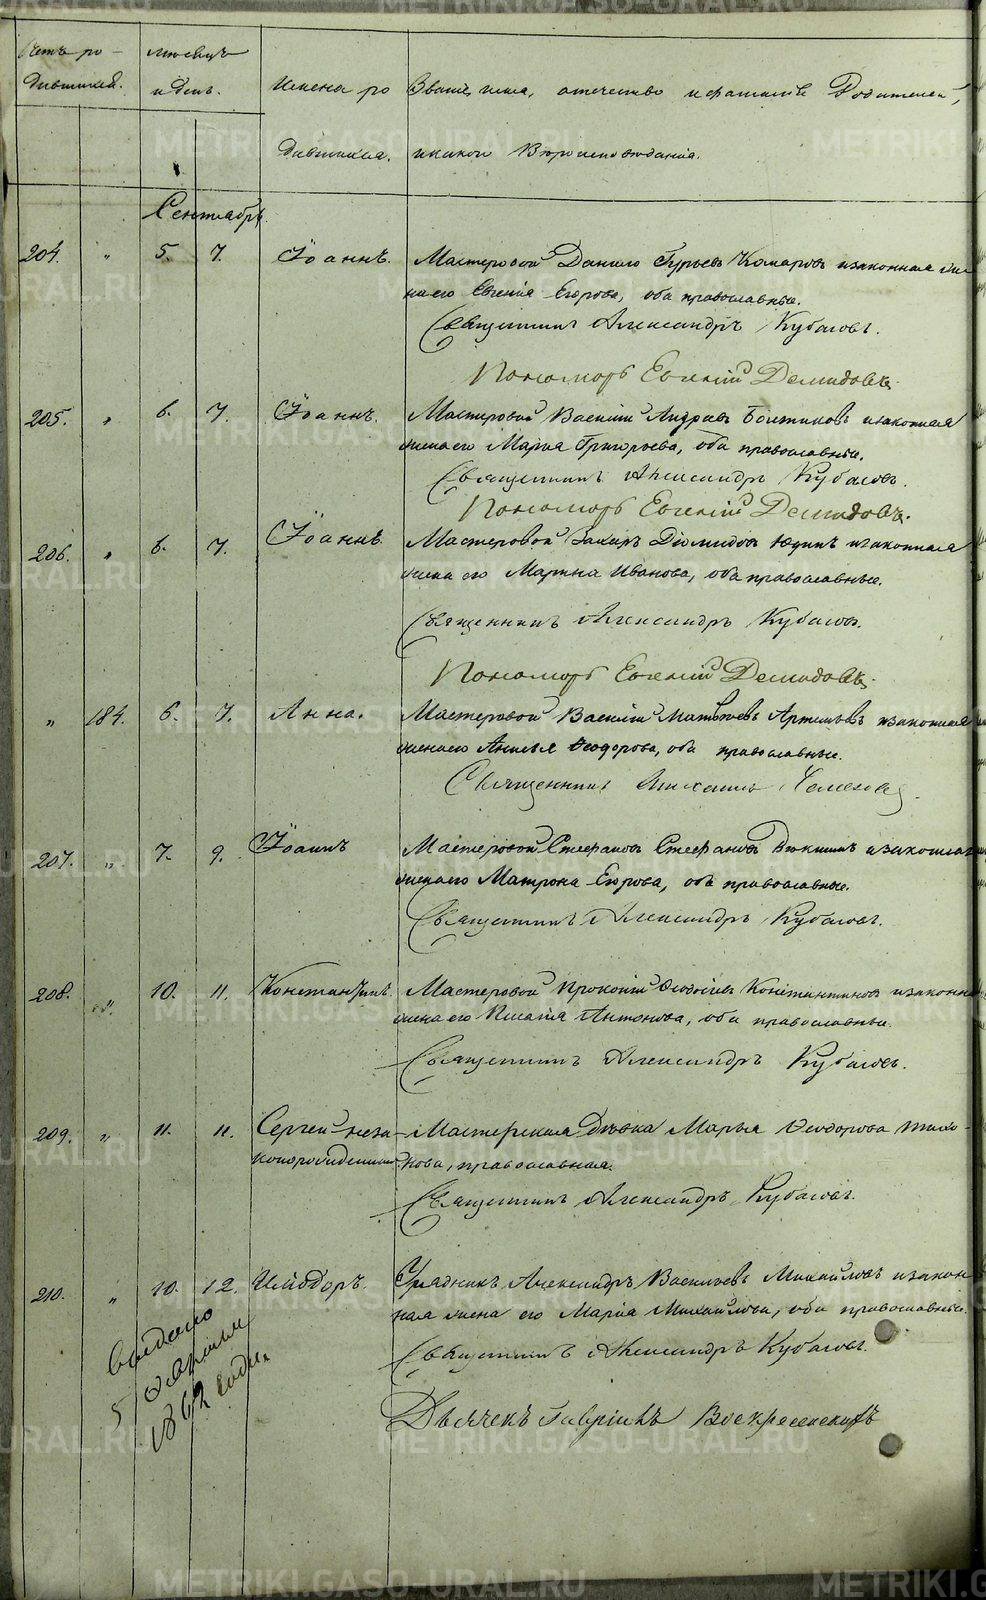 Счетъ ро-
дившихся.
Мѣсяцъ
и день.
Имена ро
дившихся.
Званіе, имя, отечество и фамилія Родителей,
и какой Вѣроисповѣданія.
Сентябрь.
204. " 5. 7. Іоаннъ. Мастеровой Данило Гурьевъ Комаровъ и законная же
на его Евгенія Егорова, оба православные.
Священникъ Александръ Кубасовъ.
Пономарь Евгеній Демидовъ.
205. " 6. 7. Іоаннъ. Мастеровой Василій Андреевъ и законная
жена его Марья Григорьева, оба православные.
Священникъ Александръ Кубасовъ.
Пономарь Евгеній Демидовъ.
206. " 6. 7. Іоаннъ Мастеровой Захаръ Діомидовъ Юдинъ и законная
жена его Марина Иванова, оба православные.
Священникъ Александръ Кубасовъ.
Пономарь Евгеній Демидовъ.
" 184. 6. 7. Анна. Мастеровой Василій Матвѣевъ и законная
жена его Ѳеодорова, оба православные.
Священникъ Михаилъ
207. " 7. 9. Іоаннъ Мастеровой Стефановъ и законная
жена его Матрона Егорова, оба православные.
Священникъ Александръ Кубасовъ.
208. " 10. 11. Константинъ. Мастеровой Прокопій Ѳеодосіевъ Константиновъ и законна
жена его Пелагія Антонова, оба православные.
Священникъ Александръ Кубасовъ.
209. " 11. 11. Сергей неза- Мастерская Дѣвка Марья Ѳеодорова Тихо-
коннорожденный нова, православная.
Священникъ Александръ Кубасовъ.
210. " 10. 12. Исидоръ. Александръ Васильевъ Михайловъ и закон-
ная жена его Марія Михайлова, оба православные.
Священникъ Александръ Кубасовъ.
Дьячекъ Гавріилъ Воскресенскій
выдано
5
1862 года.
METRIKI.GASO-URAL.RU